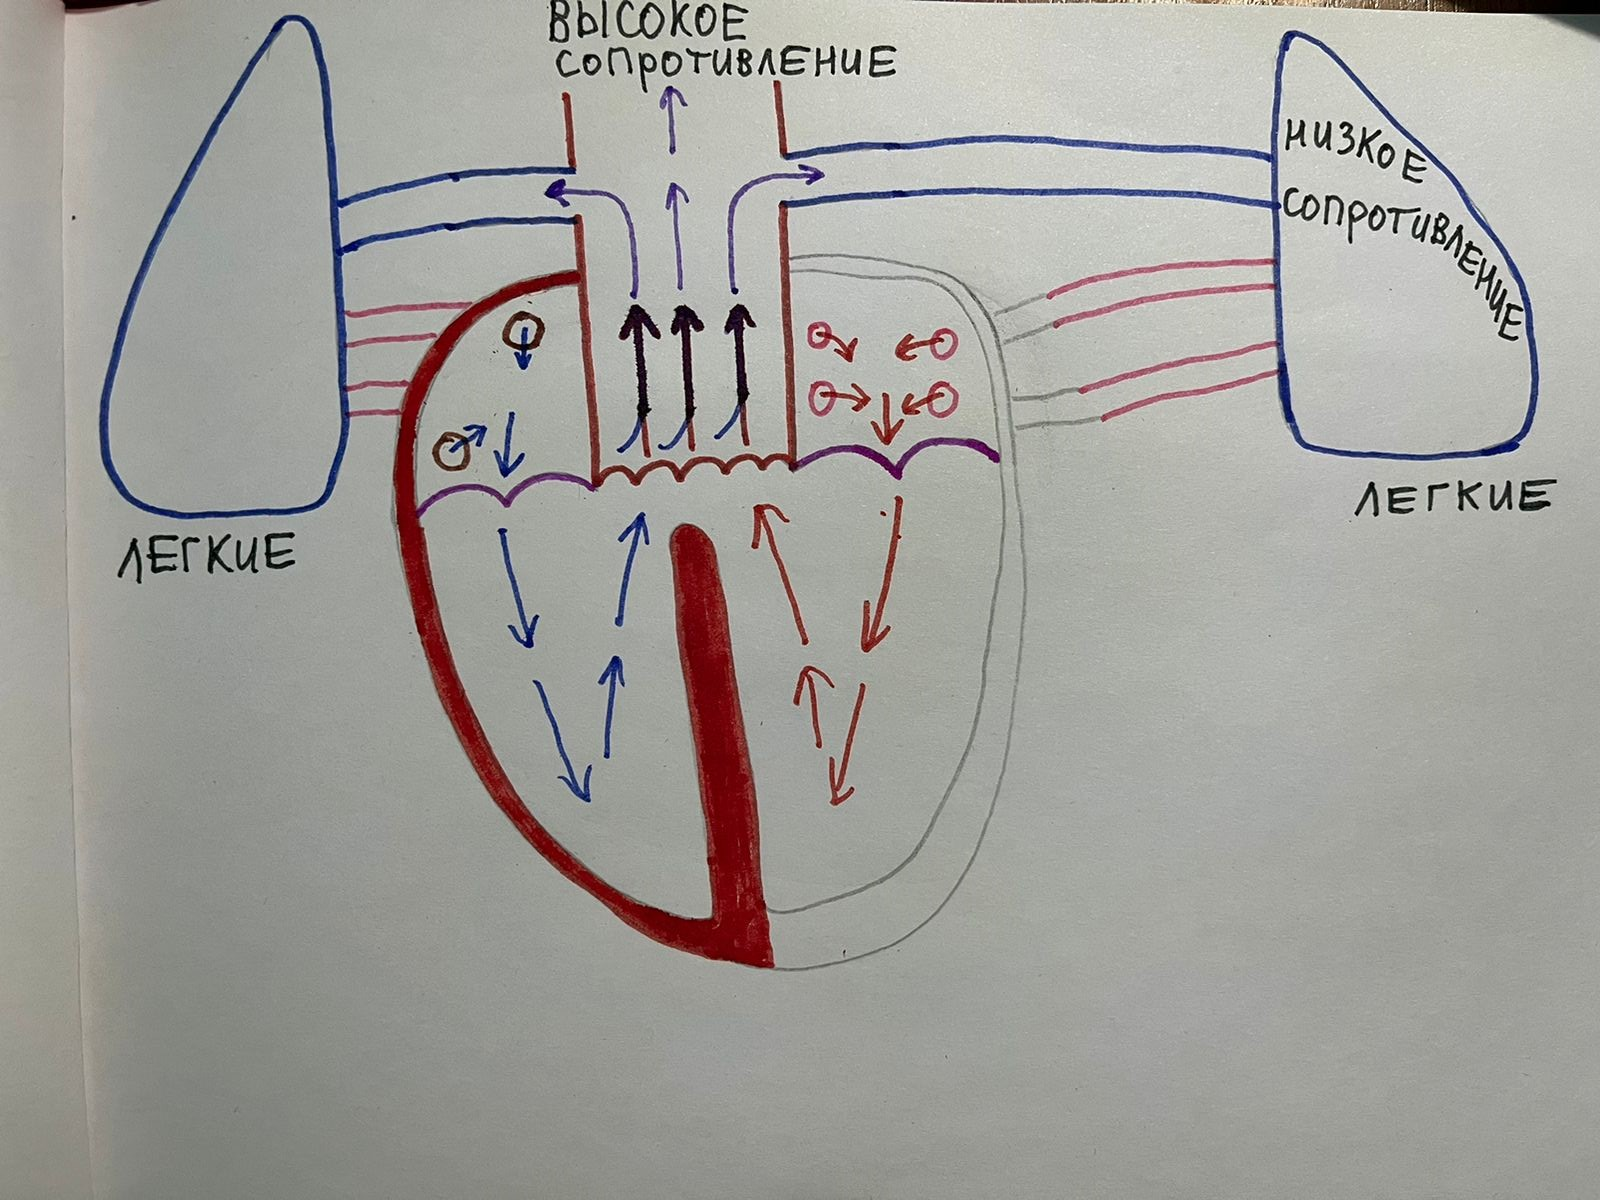 ВЫСОКОЕ
СОПРОТИВЛЕНИЕ
НИЗКОЕ
СОПРОТИВЛЕНИЕ
ЛЕГКИЕ
ЛЕГКИЕ